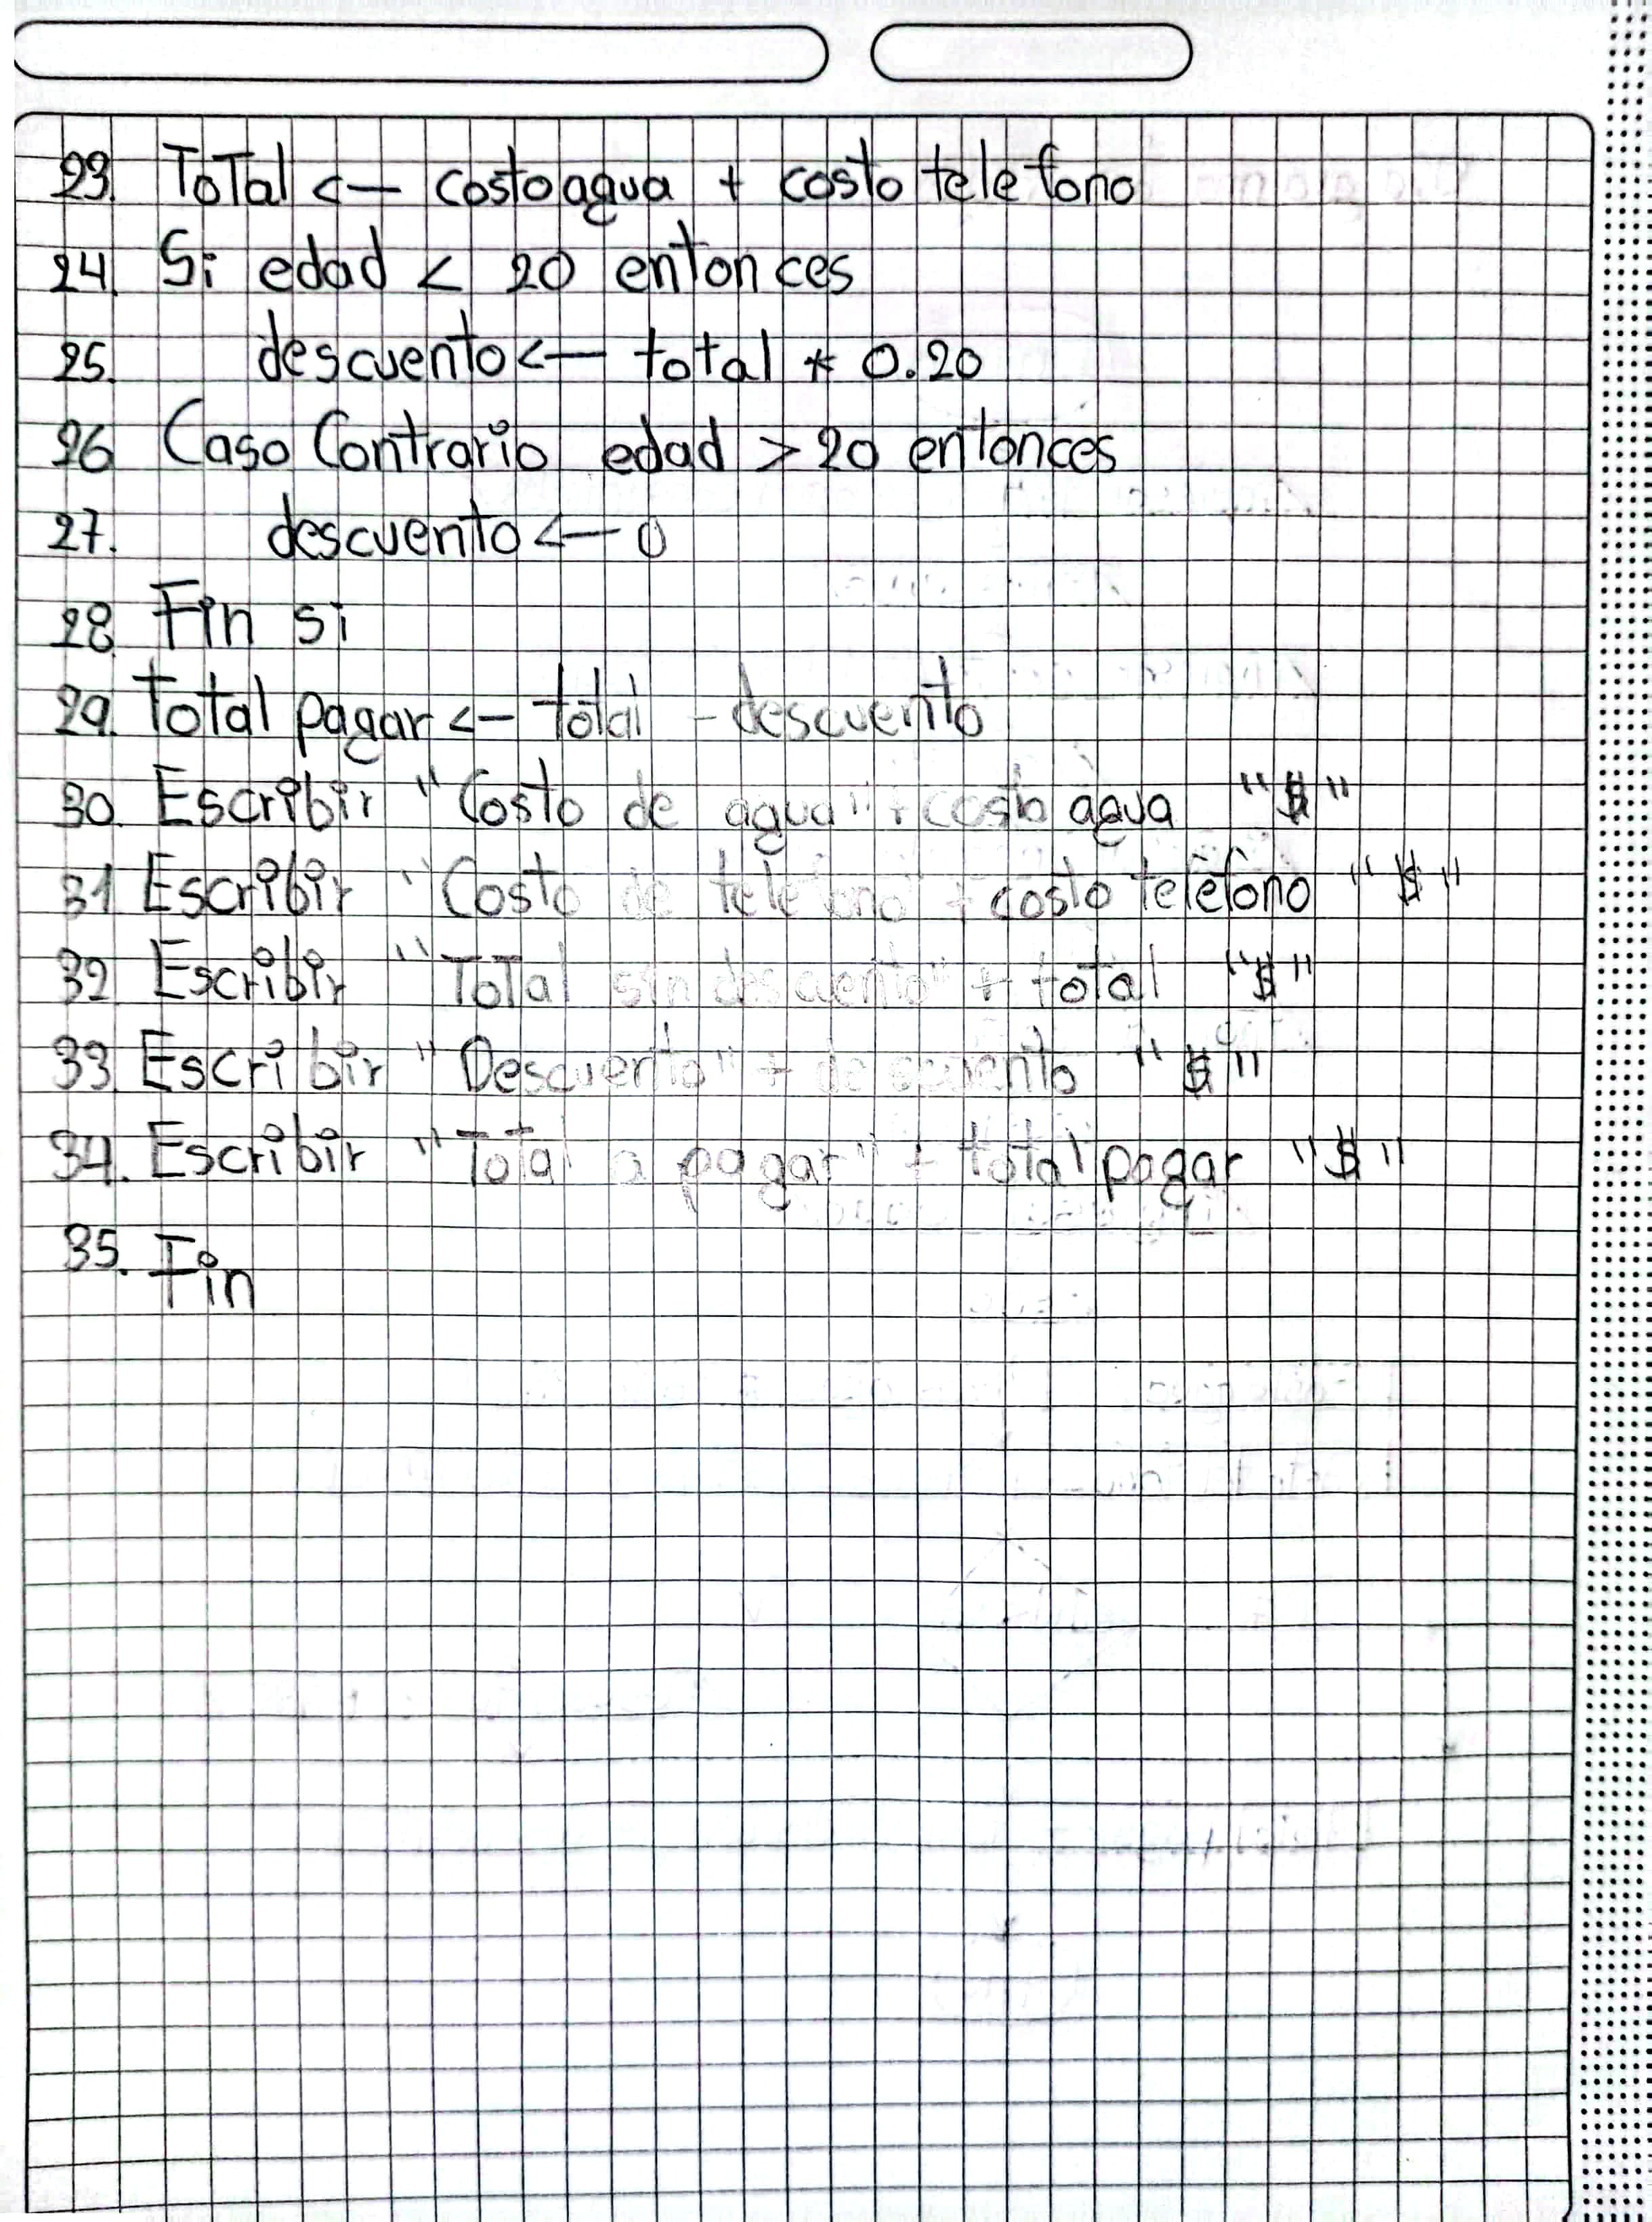 23. Total <— costoagua + costo telefono
24. Si edad < 20 entonces
25. descuento <— total * 0.20
26. Caso Contrario edad > 20 entonces
27. descuento <— 0
28. Fin si
29. Total pagar <— total - descuento
30. Escribir "Costo de agua" + costo agua "$"
31 Escribir "Costo de telefono" + costo telefono "$"
32 Escribir "Total sin descuento" + total "$"
33. Escribir "Descuento" + descuento "$"
34. Escribir "Total a pagar" + total pagar "$"
35. Fin